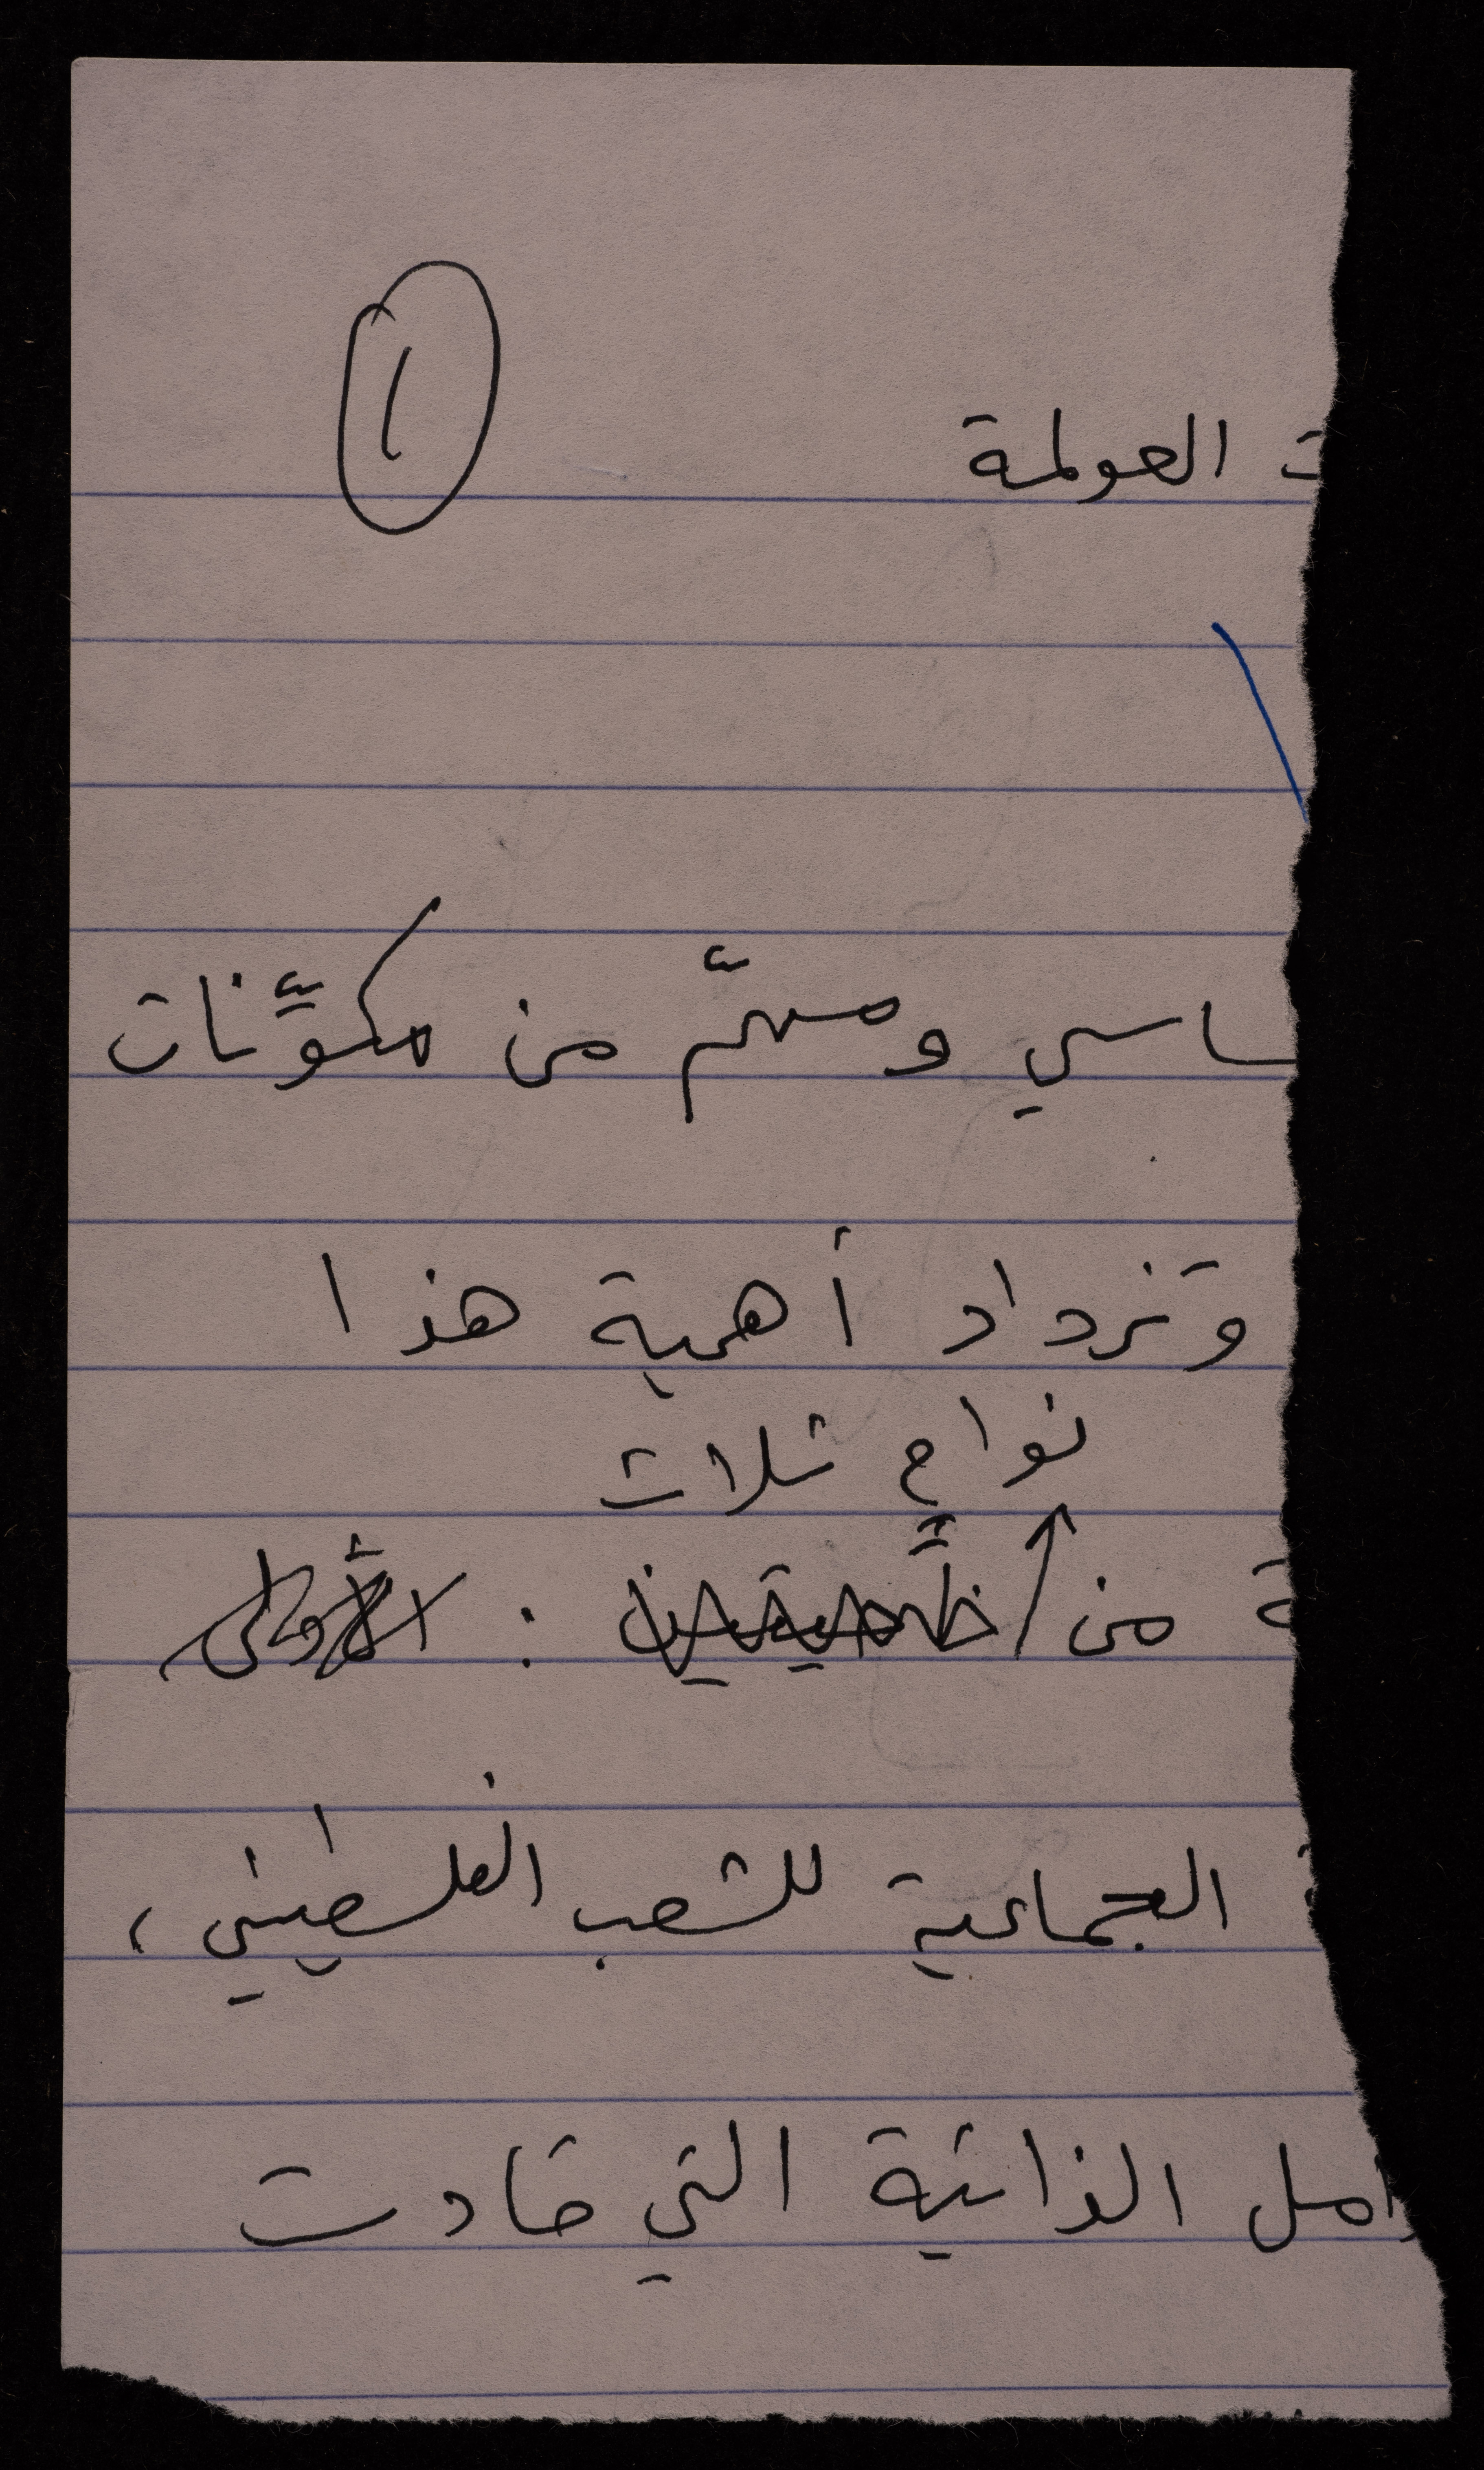 ت العولمة
١
ساسي ومهمّ من مكوّنات
وتزداد أهمية هذا
نواحٍ ثلاث
ة من :
الجماعية للشعب الفلسطيني ،
امل الذاتية التي قادت